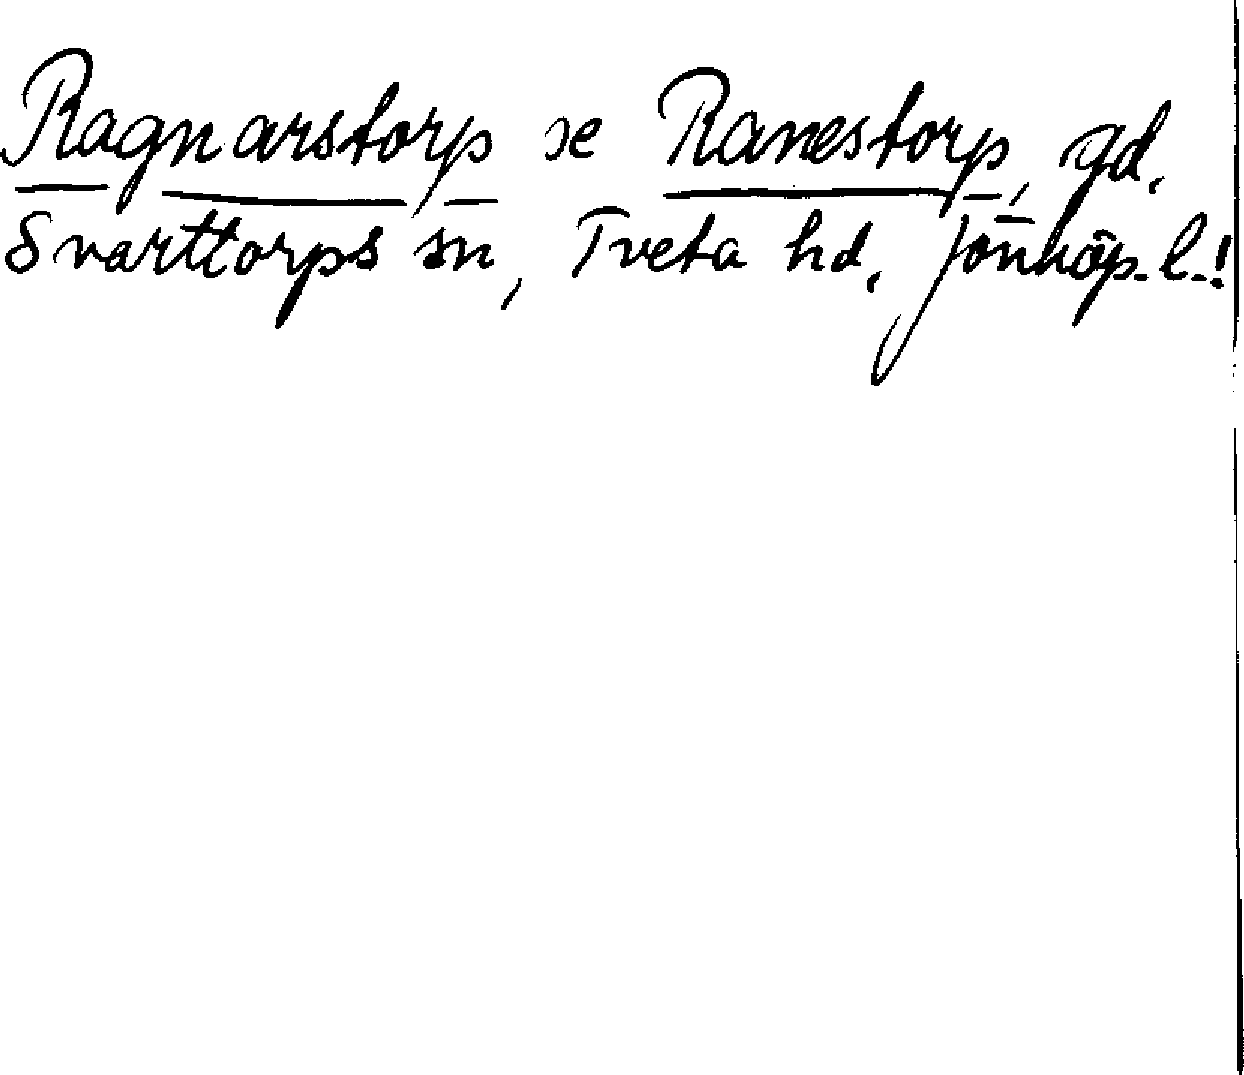 Ragnarstorp se Ranestorp, gd.
Svarttorps sn, Tveta hd, Jönköp. l.!